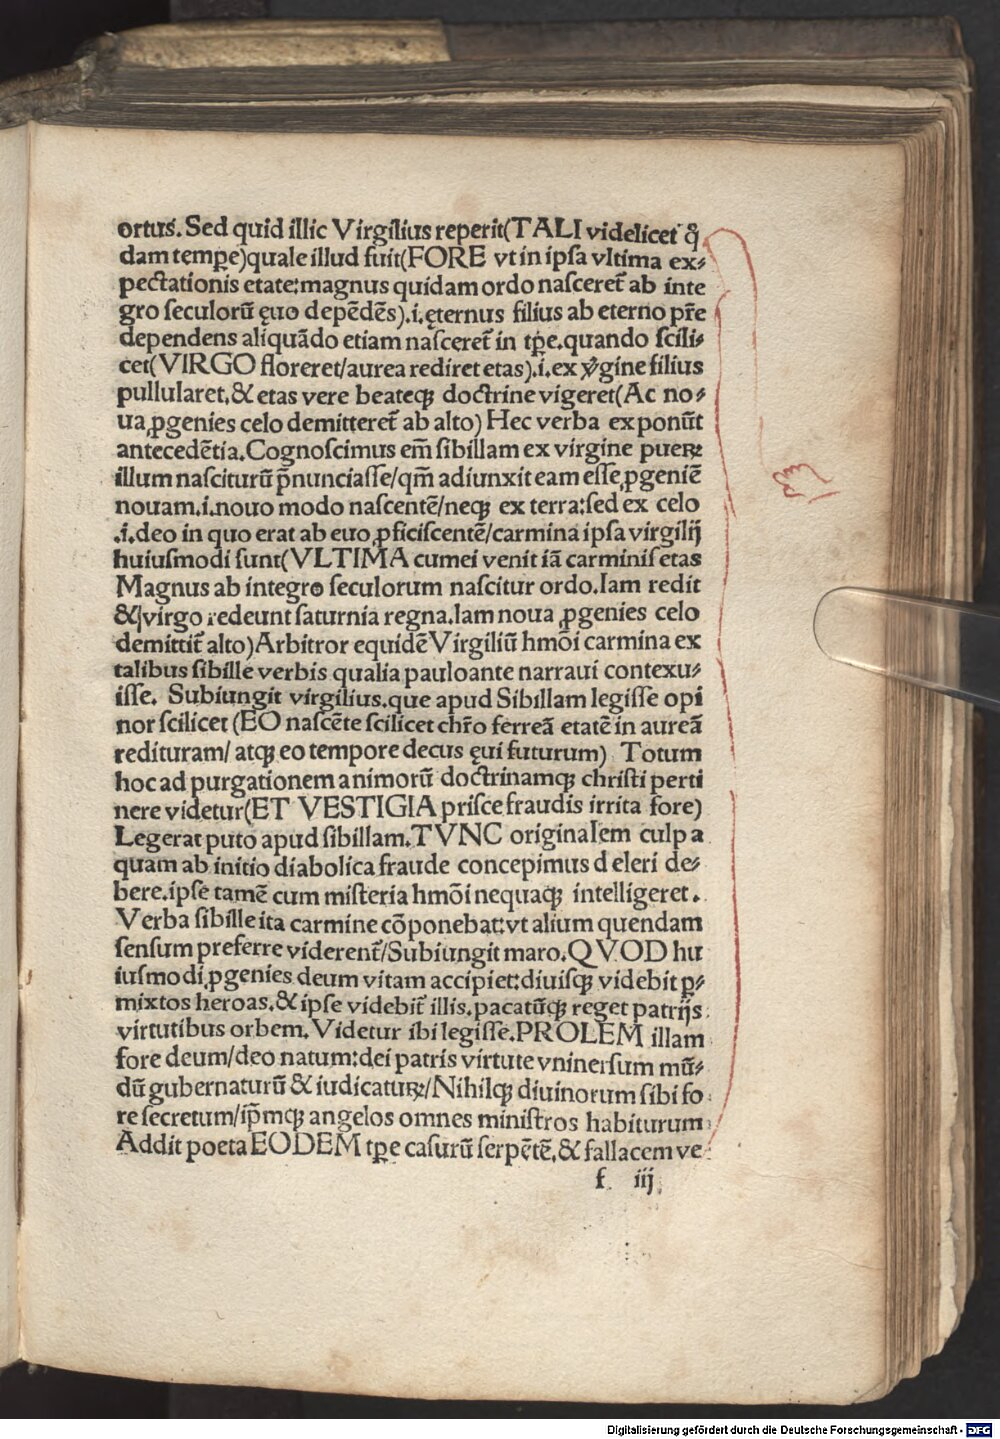 ortus. Sed quid illic Virgilius reperit(TALI videlicet q̄
dam tempe)quale illud fuit(FORE vt in ipſa vltima ex⸗
pectationis etate:magnus quidam ordo naſceret᷑ ab inte
gro ſeculorū ęuo depēdēs).i.ęternus filius ab eterno pr̄e
dependens aliquādo etiam naſceret᷑ in tꝑe.quando ſcili⸗
cet(VIRGO floreret/aurea rediret etas).i.ex v̾gine filius
pullularet.& etas vere beateqꝫ doctrine vigeret(Ac no⸗
ua ꝓgenies celo demitteret᷑ ab alto) Hec verba exponūt
antecedētia.Cognoſcimus em̄ ſibillam ex virgine pueꝝ
illum naſciturū p̄nunciaſſe/qm̄ adiunxit eam eſſe ꝓgeniē
nouam.i.nouo modo naſcentē/neqꝫ ex terra:ſed ex celo
.i.deo in quo erat ab euo ꝓficiſcentē/carmina ipſa virgilij
huiuſmodi ſunt(VLTIMA cumei venit iā carminiſ etas
Magnus ab integro ſeculorum naſcitur ordo.Iam redit
& virgo redeunt ſaturnia regna.Iam noua ꝓgenies celo
demittit᷑ alto)Arbitror equidē Virgiliū hmōi carmina ex
talibus ſibille verbis qualia pauloante narraui contexu⸗
iſſe. Subiungit virgilius.que apud Sibillam legiſſe opi
nor ſcilicet (EO naſcēte ſcilicet chr̄o ferreā etatē in aureā
redituram/ atqꝫ eo tempore decus ęui futurum) Totum
hoc ad purgationem animorū doctrinamqꝫ chriſti perti
nere videtur(ET VESTIGIA priſce fraudis irrita fore)
Legerat puto apud ſibillam.TVNC originalem culpa
quam ab initio diabolica fraude concepimus deleri de⸗
bere.ipſe tamē cum miſteria hmōi nequaqꝫ intelligeret.
Verba ſibille ita carmine cōponebat:vt alium quendam
ſenſum preferre viderent᷑/Subiungit maro.QVOD hu
iuſmodi ꝓgenies deum vitam accipiet:diuiſqꝫ videbit ꝑ⸗
mixtos heroas.& ipſe videbit᷑ illis.pacatūqꝫ reget patrijs
virtutibus orbem.Videtur ibi legiſſe.PROLEM illam
fore deum/deo natum:dei patris virtute vninerſum mū⸗
dū gubernaturū & iudicatuꝝ/Nihilqꝫ diuinorum ſibi fo
re ſecretum/ip̄mqꝫ angelos omnes miniſtros habiturum
Addit poeta EODEM tꝑe caſurū ſerpētē.& fallacem ve
f iij
Digitalisierung gefördert durch die Deutsche Forschungsgemeinschaft - DFG